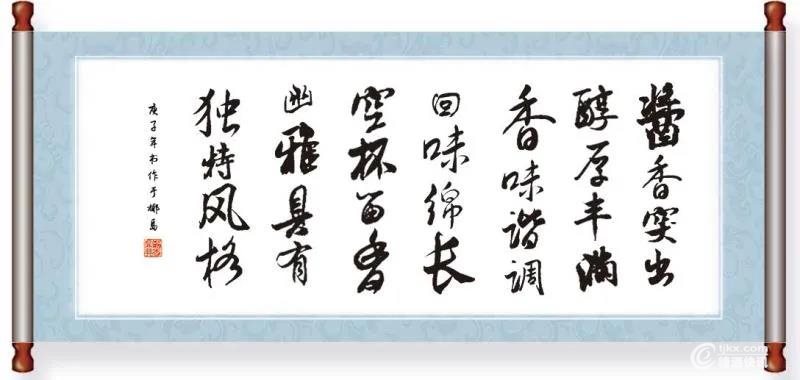 醬香突出
醇厚丰满
香味谐调
回味绵长
空杯留香
幽雅具有
独特风格
庚子年书作于
tjkx.com
糖酒快讯